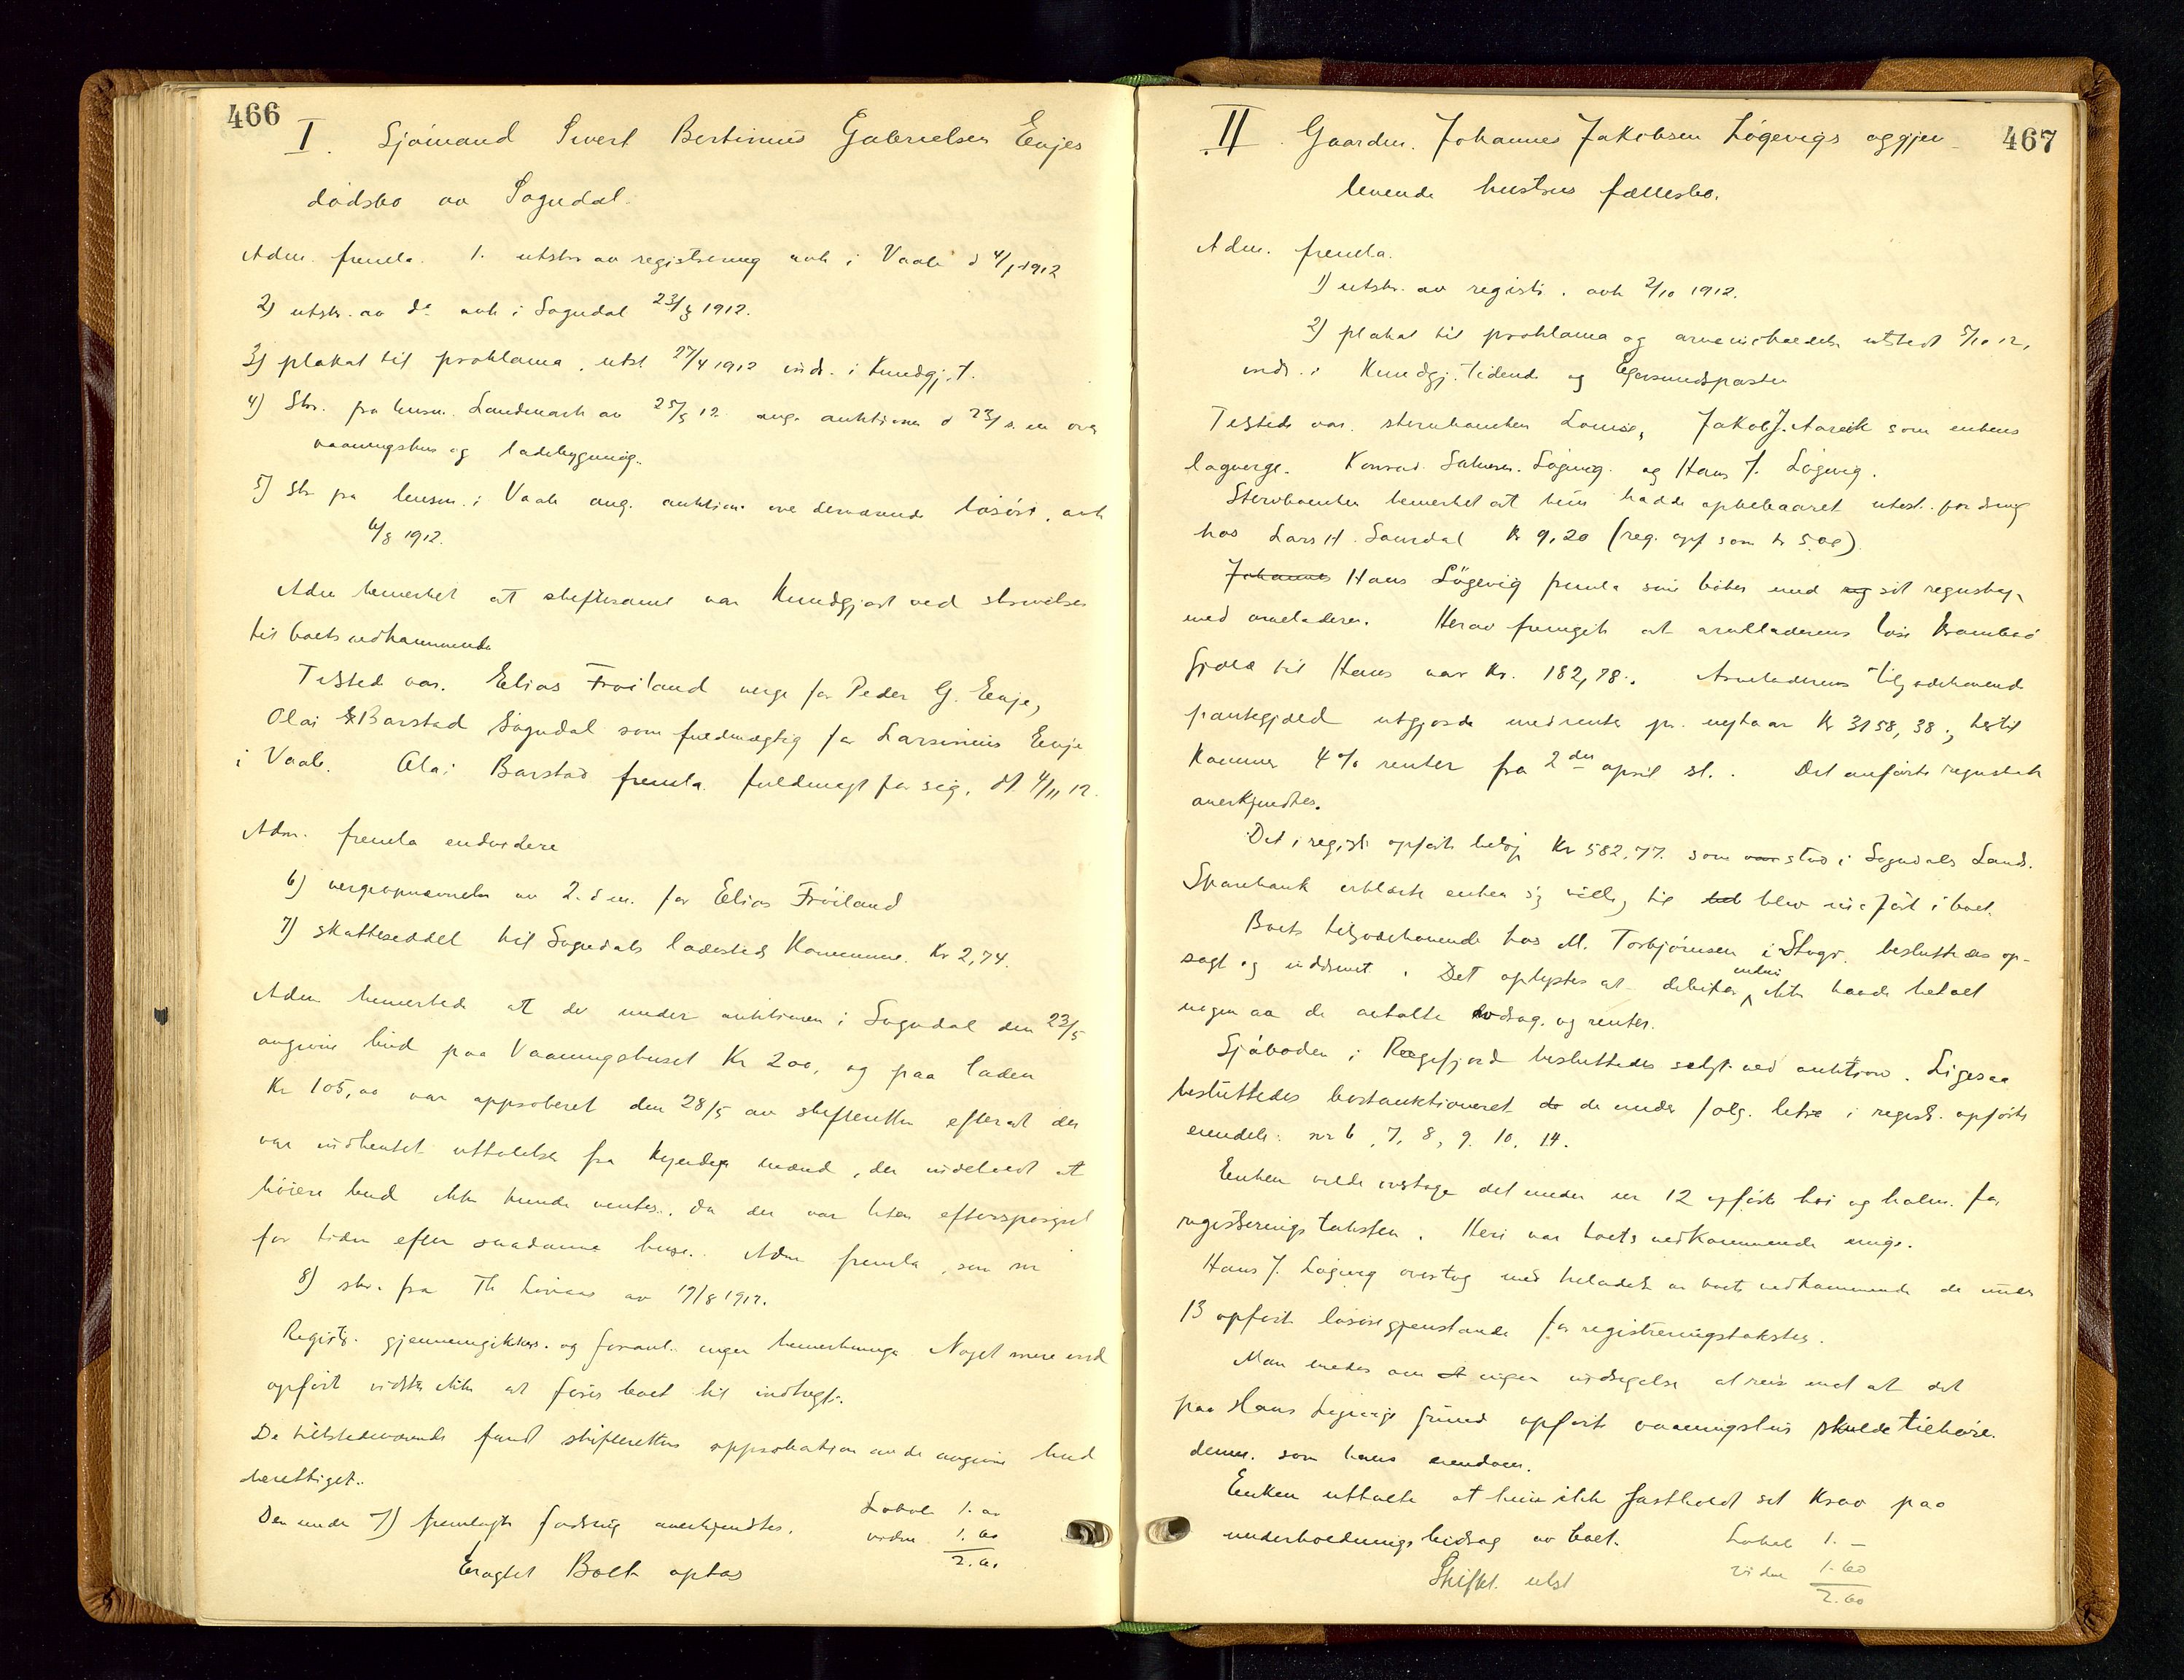 466
I. Sjømand Sivert Bertinius Gabrielsen Eies
dødsbo av Sogndal.
Adm. fremla. 1. utskr av registrering avh i Vaale d 4/1 1912
2) utskr. av do avh i Sogndal 23/3 1912.
3) plakat til proklama, utst. 27/4 1912 indr. i Kundgj. t.
4) Skr. fra lensm. Landmark av 25/5 12 ang. auktionen d 23/s. m over
vaaningshus og ladebygning.
5) Skr fra lensm. i Vaale ang. auktion over derværende løsøre, avh
6/8 1912.
Adm bemerket at skiftesaml var Kundgjort ved skrivelser
til boets vedkommende
Tilsted var. Elias Frøiland verge for Peder G. Eie,
Olai Barstad Sogndal som fuldmægtig for Larsinius Eie
i Vaale. Olai Barstad fremla fuldmagt for sig, dt 4/11 12.
Adm. fremla endvidere
6) vergeopnævnelse av 2. d m. for Elias Frøiland
7) skatteseddel til Sogndals ladesteds Kommune. Kr 2,74.
Adm bemerkede at de under auktionen i Sogndal den 23/5
angivne bud paa Vaaningshuset Kr 200, og paa laden
Kr 105,00 var approberet den 28/5 av skifteretten efterat der
var indhentet uttalelse fra kyndige mænd, der indeholdt at
høiere bud ikke kunde ventes, da der var liten efterspørgsel
for tiden efter saadanne huse. Adm fremla, som nr
8) skr. fra Th av 19/8 1912.
Registr. gjennemgikkes og foranl. ingen bemerkninger. Noget mere end
opført vidstes ikke at føres boet til indtægt.
De tilstedeværende fandt skifterettens approbation av de angivne bud
berettiget.
Den under 7) fremlagte fordring anerkjendtes.
Lokale 1.00
vidne 1.60
2.60
Eragtet Boet optas
467
II. Gaardm. Johannes Jakobsen Løgevigs og gjen-
levende hustrus fællesbo.
Adm. fremla.
1) utskr. av registr. avh 2/10 1912.
2) plakat til proklama og arveindkaldelse utstedt 5/10 12,
indr. i Kundgj. tidende og Egersundsposten
Tilstede var sterbeenken Louise, Jakob J. Aareik som enkens
lagverge. Konrad Salvesen Løgevig og Hans J. Løgevig.
Sterboenken bemerket at hun hadde oppebaaret utest. fordring
hos Lars H. Kr 9,20 (reg. opf som kr 5.00)
Johannes Hans Løgevig fremla sine bøker med og sit regnskap
med arveladeren. Herav fremgik at arveladerens løse krambod
gjæld til Hans var Kr. 182,78. Arveladerens tilgodehavende
pantegjæld utgjorde med renter pr. nytaar Kr 3158,38; hertil
kommer 4% renter fra 2den april st. Det anførte regnskab
anerkjendtes.
Det i registr opførte beløp Kr 582,77. som var stod i Sogndals Lands.
Sparebank erklærte enken sig villig til det blev indført i boet.
Boets tilgodehavende hos M. Torbjørnsen i Stogr. besluttedes op-
sagt og inddrevet. Det oplystes at debitor endnu ikke havde betalt
nogen av de avtalte avdrag. og renter.
Sjøboden i Rægefjord besluttedes solgt ved auktion. Ligesaa
besluttedes bortauktioneret de de under følg. litra i registr. opførte
eiendele: nr 6, 7, 8, 9. 10. 14.
Enken vilde overtage det under nr 12 opførte høi og halm. for
registrerings taksten. Heri var boets vedkommende enige.
Hans J. Løgevig overtog med tilladelse av boets vedkommende de under
13 opførte løsøregjenstande for registreringstaksten.
Man enedes om at ingen indsigelse at reise mot at det
paa Hans Løgevigs grund opførte vaaningshus skulde tilhøre
denne som hans eiendom.
Enken uttalte at hun ikke fastholdt sit krav paa
underholdnings bidrag av boet.
Lokale 1. –
vidne 1.60
2.60
Skiftet utst